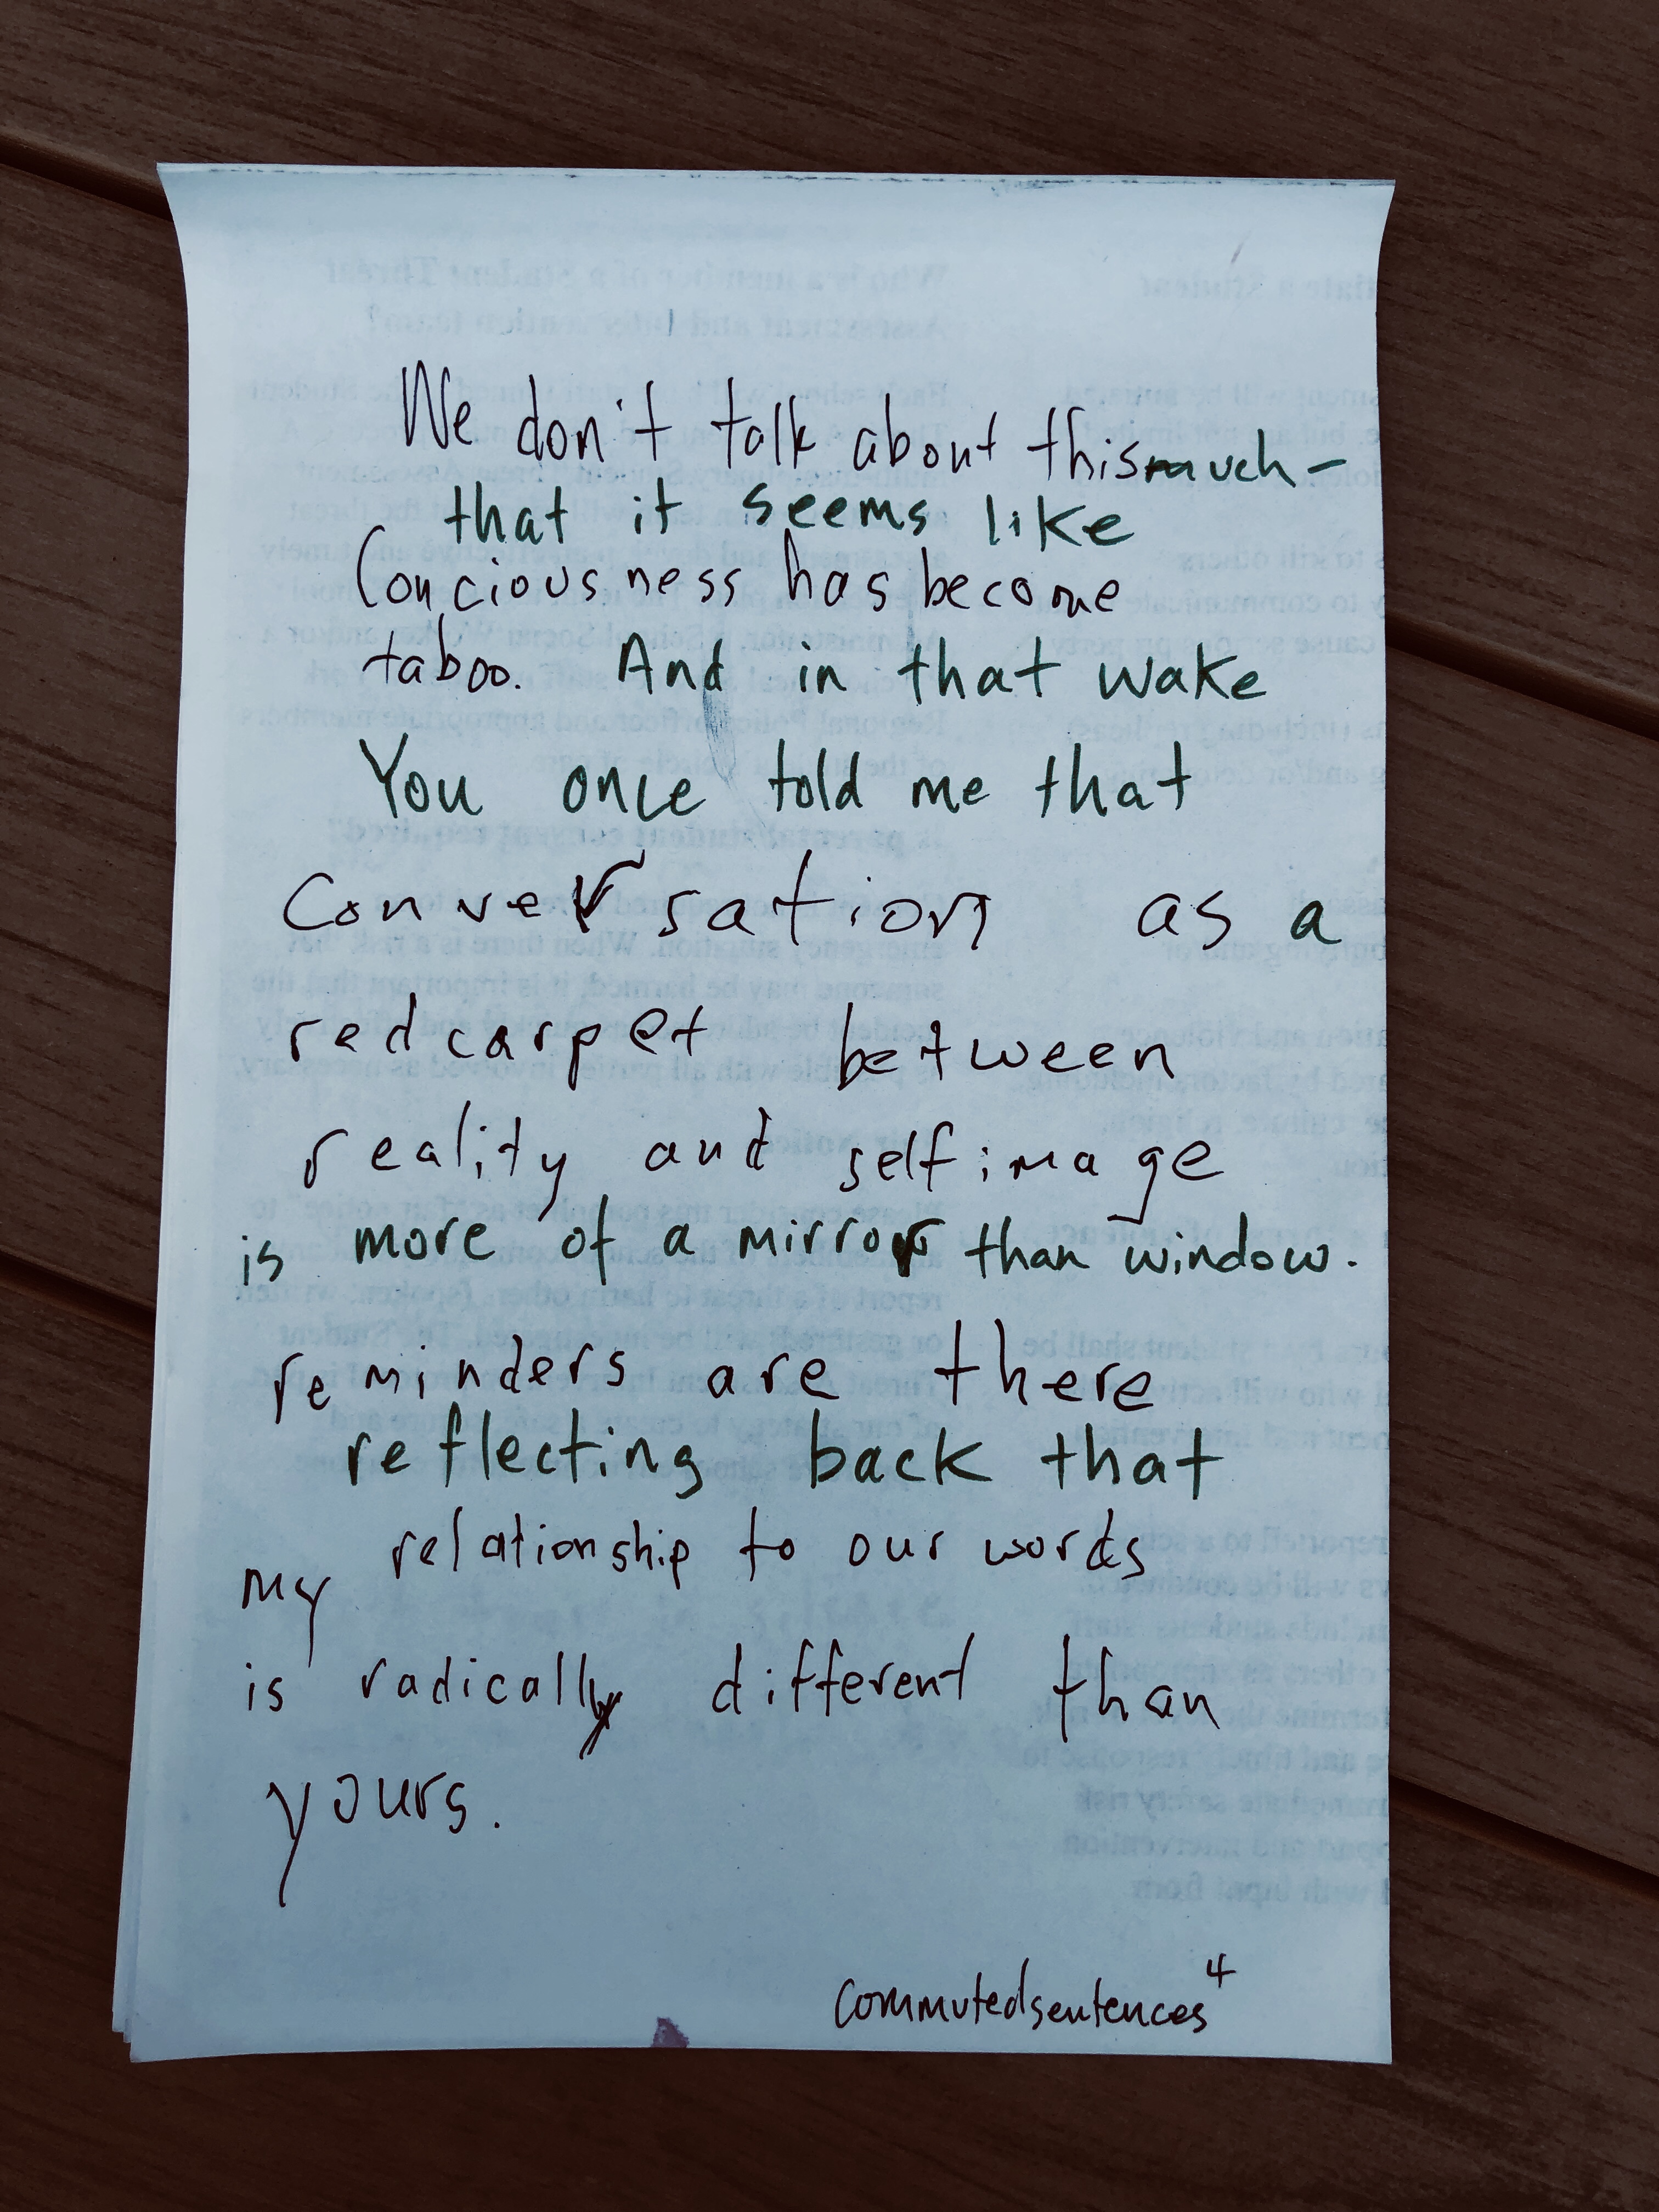 We don't talk about this much -
that it seems like
Conciousness has become
taboo. And in that wake
You once told me that
Conversation as a
red carpet between
reality and self image
is more of a mirror than window.
reminders are there
reflecting back that
my relationship to our words
is radically different than
yours.
commutedsentences 4